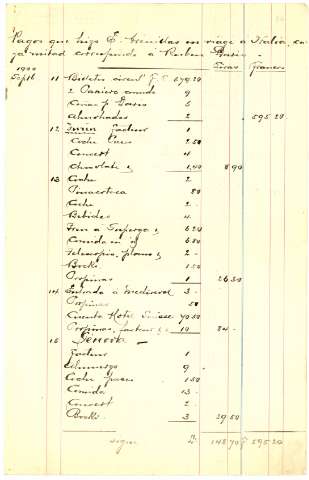 Pagos que hizo E. Arenillas en viage a Italia, cu
ya mitad corresponde á Ruben Dario -
Liras Francos
1900
Septb 11 Billetes circul F. S. 579.20
2 Paniers comida 9
5
Almohadas 2 595 20
12 Turin Facteur 1
Coche 2.50
Concert 4
Chocolate 1,40 8 90
13 Coche 2
Pinacoteca 80
Coche 2 -
Bebidas 4
Tren a Superga 6 20
Comida en 6 80
Telescopio, plano 2 -
Bocks 1 50
Propinas 26.30
14 Entrada á Medieval 3 -
Propinas 50
Cuenta Hotel Suisse 70 50
Propinas, facteur 10 84 -
15 Genova -
Facteur 1
Almuerzo 9 -
Coche 1 50
Comida 13 -
Concert 2
Bocks 3 29 50
sigue 148 70 595 20